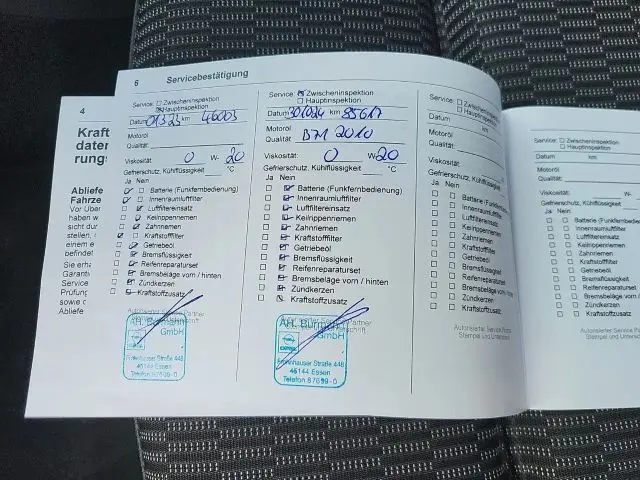 4
Kraft
daten
rung
Abliefe
Fahrze
Vor Über
haben w
sicht dur
stellen,
einem e
befindet
Sie erha
Garanti
Service
Prüfung
sowie c
Abliefe
6 Servicebestätigung
Service: Zwischeninspektion
Hauptinspektion
Datum km 46003
Motoröl
Qualität:
Viskosität: 0 W- 20
Gefrierschutz, Kühlflüssigkeit °C
Ja Nein
Batterie (Funkfernbedienung)
Innenraumluftfilter
Luftfiltereinsatz
Keilrippenriemen
Zahnriemen
Kraftstofffilter
Getriebeöl
Bremsflüssigkeit
Reifenreparaturset
Bremsbeläge vorn / hinten
Zündkerzen
Kraftstoffzusatz
AH. Burmann
GmbH
Frohnhauser Straße 448
45144 Essen
Telefon 87699-0
Service: Zwischeninspektion
Hauptinspektion
Datum km 85617
Motoröl
Qualität 2010
Viskosität: 0 W- 20
Gefrierschutz, Kühlflüssigkeit °C
Ja Nein
Batterie (Funkfernbedienung)
Innenraumluftfilter
Luftfiltereinsatz
Keilrippenriemen
Zahnriemen
Kraftstofffilter
Getriebeöl
Bremsflüssigkeit
Reifenreparaturset
Bremsbeläge vorn / hinten
Zündkerzen
Kraftstoffzusatz
AH. Burmann
GmbH
Frohnhauser Straße 448
45144 Essen
Telefon 87699-0
Service: Zwischeninspektion
Hauptinspektion
Datum km
Motoröl
Qualität
Viskosität:
Gefrierschutz, Kühlflüssigkeit
Ja Nein
Batterie (Funkfernbedienung)
Innenraumluftfilter
Luftfiltereinsatz
Keilrippenriemen
Zahnriemen
Kraftstofffilter
Getriebeöl
Bremsflüssigkeit
Reifenreparaturset
Bremsbeläge vorn / hinten
Zündkerzen
Kraftstoffzusatz
Autorisierter Service
Stempel und
Service: Zwischeninspektion
Hauptinspektion
Datum km
Motoröl
Qualität:
Viskosität:
Gefrierschutz, Kühlflüssigkeit
Ja Nein
Batterie
Innenraumluftfilter
Luftfiltereinsatz
Keilrippenriemen
Zahnriemen
Kraftstofffilter
Getriebeöl
Bremsflüssigkeit
Reifenreparaturset
Bremsbeläge vorn / hinten
Zündkerzen
Kraftstoffzusatz
Autorisierter Service
Stempel und